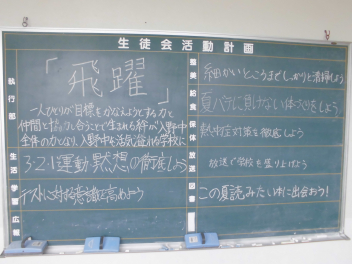 生徒会活動計画
執行部
「飛躍」
一人ひとりが目標をかなえようとする力と
仲間と
合うことで生まれる絆が入野中
全体の力となり、入野中を活気溢れる学校に
生活
3・2・1運動 黙想の徹底しよう
学習
テストに対する意識を高めよう
広報
整美
細かいところまでしっかりと清掃しよう
給食
夏バテに負けない体づくりをしよう
保体
熱中症対策を徹底しよう
放送
放送で学校を盛り上げよう
図書
この夏読みたい本に出会おう!